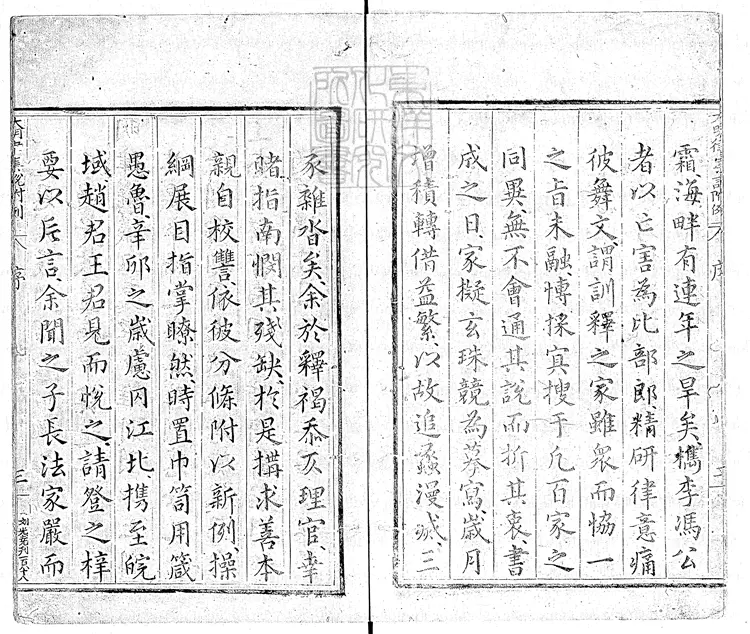 霜海畔有連年之旱矣檇李馮公
者以亡害為比部郎精研律意痛
彼舞文謂訓釋之家雖衆而協一
之旨未融博採冥搜于凡百家之
同異無不會通其說而折其衷書
成之日家擬玄珠競為摹寫歲月
增積轉借益繁以故追蠡漫滅三
豕雜沓矣余於釋褐忝仄理官幸
睹指南憫其殘缺於是搆求善本
親自校讐依彼分條附以新例操
綱展目指掌瞭然時置巾笥用箴
愚魯辛卯之歲慮囚江北携至皖
域趙君王君見而悅之請登之梓
要以后言余聞之子長法家嚴而
序
三